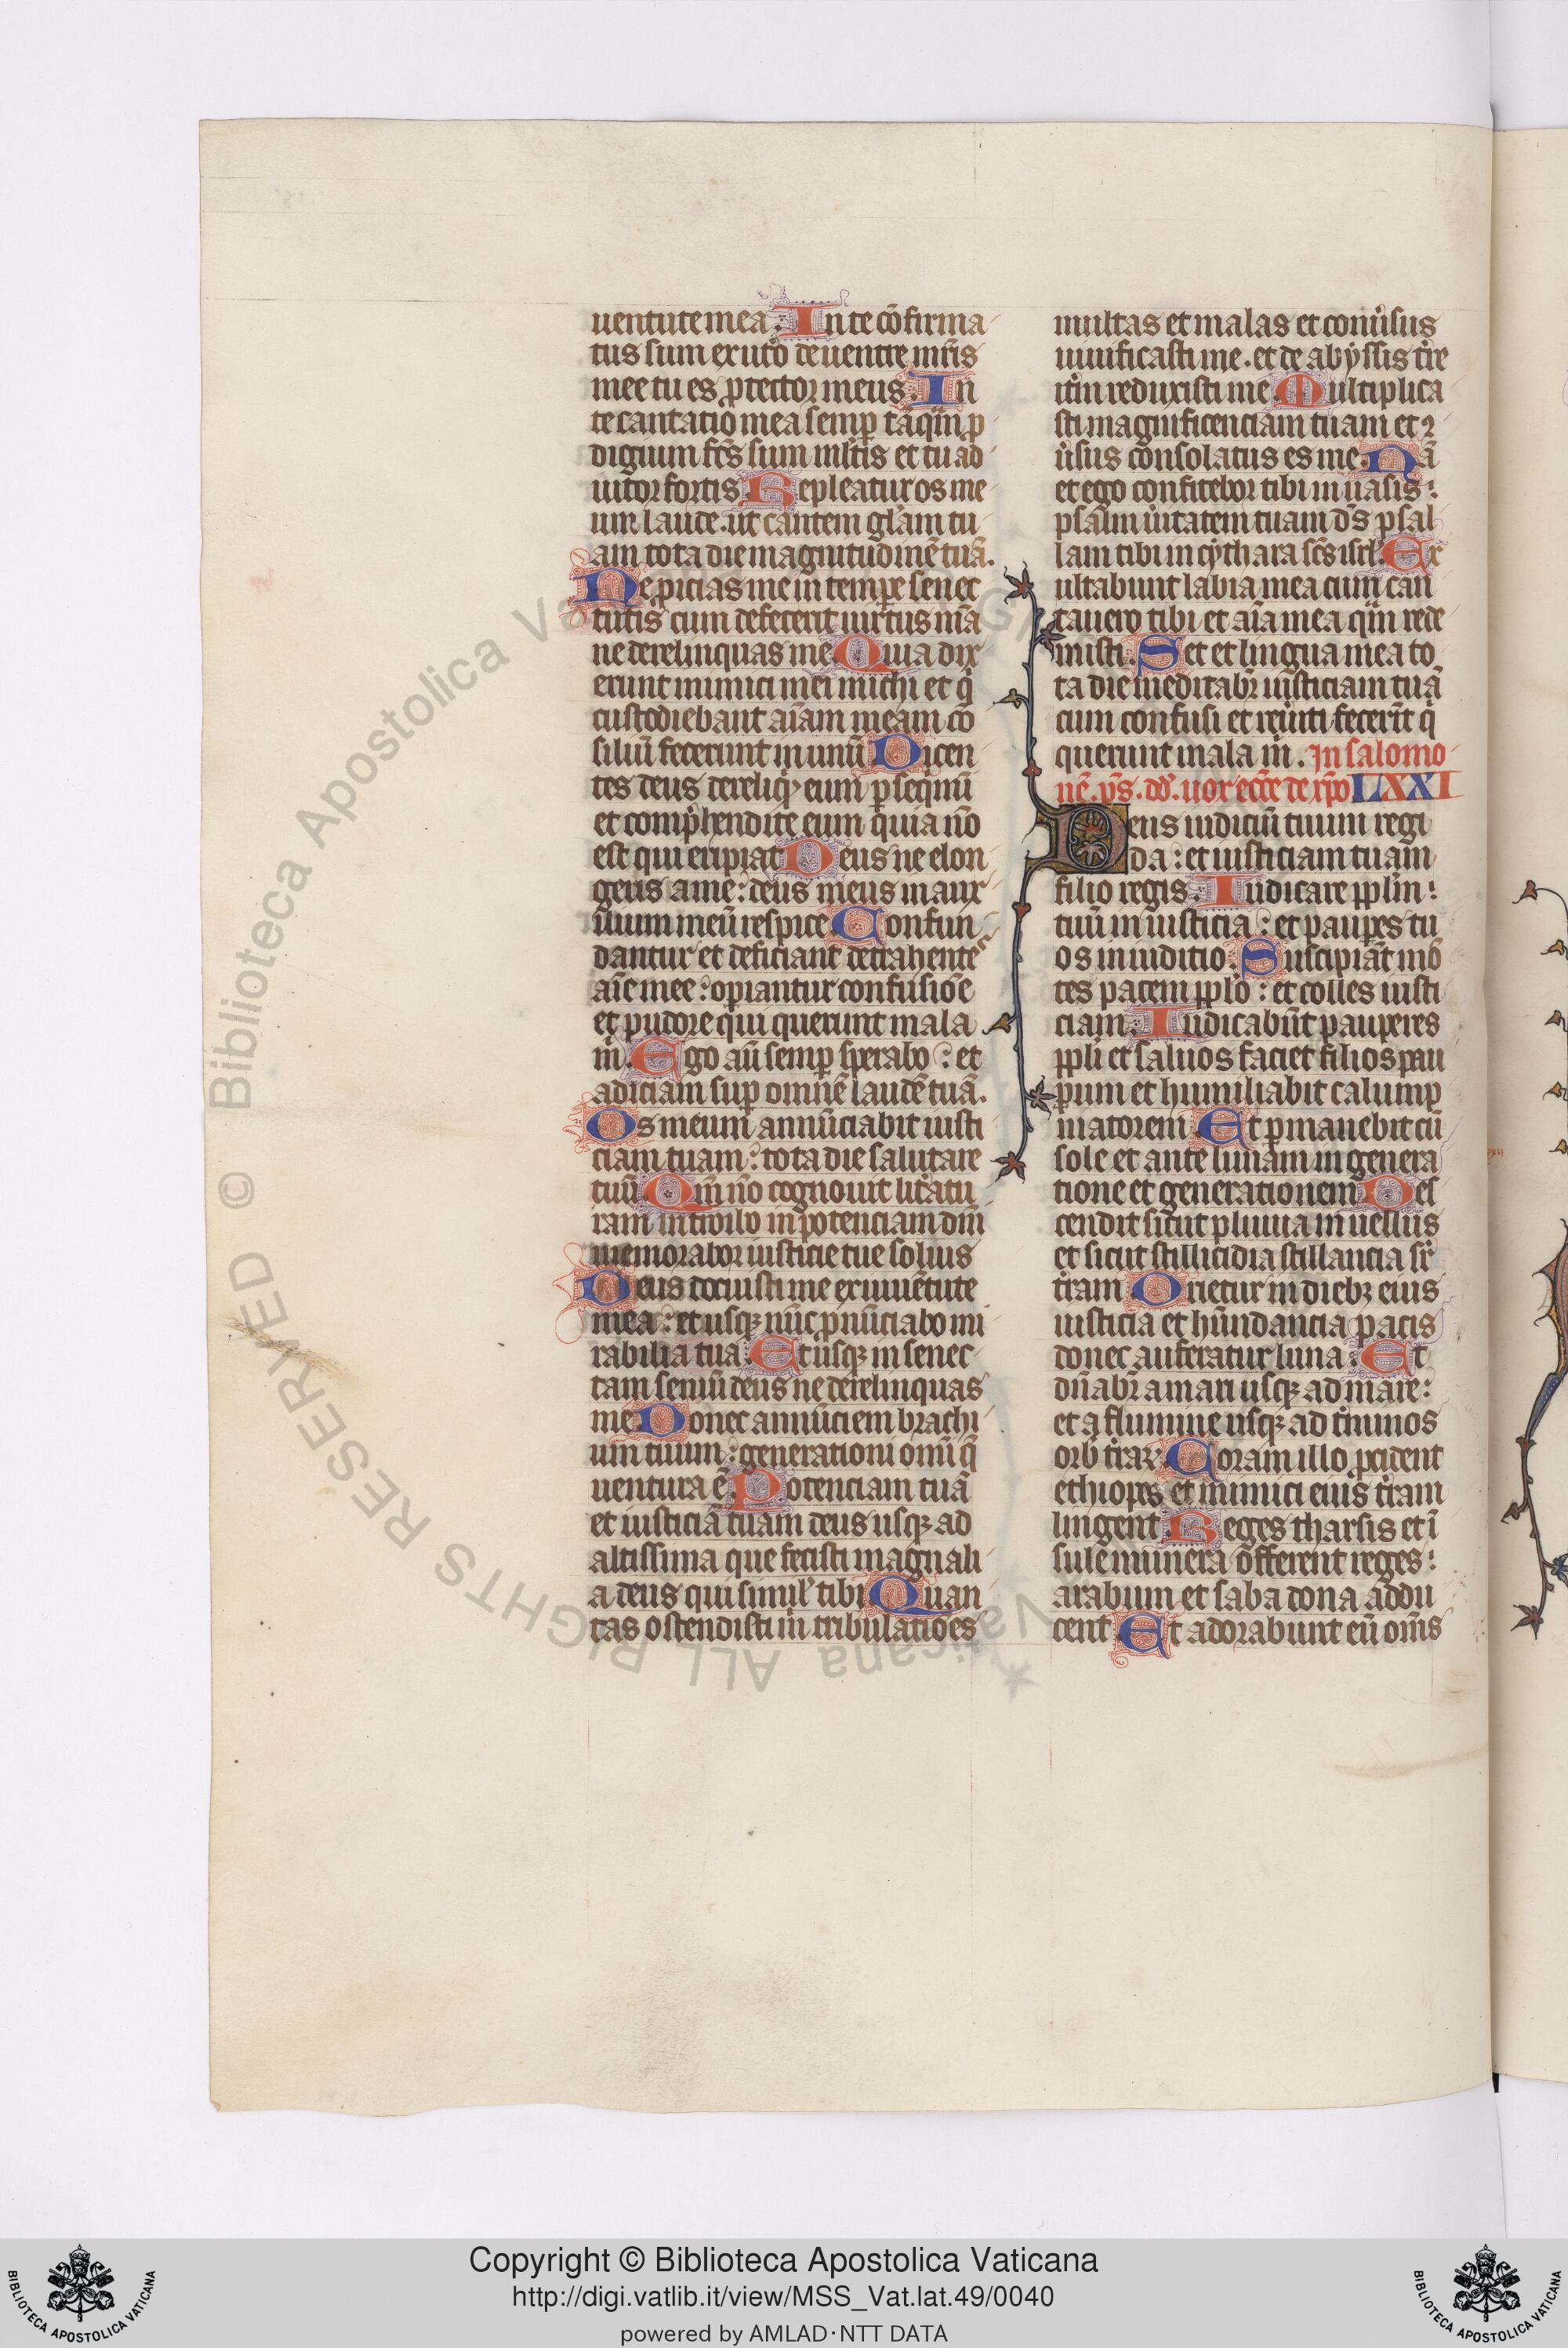 uentute mea. In te cõfirma
tus sum ex utõ de uentre mr̃is
mee tu es ꝓtector meus. In
te cantatio mea semꝑ tãq̃m ꝓ
digium fc̃s sum ml̃tis et tu ad
iutor fortis Repleatur os me
um laude. ut cantem gl̃am tu
am tota die magnitudinẽ tuã.
Ne ꝓicias me in tempore senec
tutis cum defecerit uirtus m̃a
ne derelinquas me Quia dix
erunt inimici mei michi et q̃
custodiebant aĩam meam cõ
siliũ fecerunt in unũ Dicen
tes deus dereliq̃ eum ꝑseq̃mĩ
et comp̃hendite eum quia nõ
est qui eripiat Deus ne elon
geris a me: deus meus in aux
ilium meũ respice Confun
dantur et deficiant detrahentes
aĩe mee: oꝑiantur confusiõe
et pudore qui querunt mala
m̃. Ego aũ semꝑ sperabo: et
adiciam suꝑ omnẽ laudẽ tuã.
Os meum annũciabit iusti
ciam tuam: tota die salutare
tuũ Qm̃ nõ cognoui litẽratu
ram introibo in potenciam dñi
memorabor iusticie tue solius
Deus docuisti me ex iuuẽtute
mea: et usqꝫ nũc ꝓnũciabo mi
rabilia tua Et usqꝫ in senec
tam seniũ deus ne derelinquas
me Donec annũciem brachi
um tuum: generationi omĩ q̃
uentura ẽ. Potenciam tuã
et iusticiã tuam deus usqꝫ ad
altissima que fecisti magnali
a deus qui simil̃ tibi Quan
tas ostendisti m̃ tribulatiões
multas et malas et conũsus
uiuificasti me. et de abyssis tr̃e
itm̃ reduxisti me Multiplica
sti magnificenciam tuam et ꝯ
ũsus consolatus es me. Nã
et ego confitebor tibi in uasis:
psalm̃ ũitatem tuam dš psal
lam tibi in cythara sc̃s isrl̃. Ex
ultabunt labia mea cum can
tauero tibi et aĩa mea q̃m rede
misti. Set et lingua mea to
ta die meditabr̃ iusticiam tuã
cum confusi et reũiti fecerĩt q̃
querunt mala m̃. In salomo
nẽ. p̃s. dd̃. uox ecc̃e de xp̃o LXXI
Deus iudiciũ tuum regi
da: et iusticiam tuam
filio regis. Iudicare ppl̃m:
tuũ in iusticia: et pauꝑes tu
os in iuditio. Suscipiãt mõ
tes pacem ppl̃o: et colles iusti
ciam. Iudicabũt pauperes
ppl̃i et saluos faciet filios pau
ꝑum et humiliabit calump
niatorem Et ꝑmanebit cũ
sole et ante lunam in genera
tione et generationem Des
cendit sicut pluuia in uellus
et sicut stillicidia stillancia sr̃
tr̃am Orietur in diebꝫ eius
iusticia et hũndancia pacis
donec auferatur luna: Et
dñabr̃ a mari usqꝫ ad mare:
et a flumine usqꝫ ad tr̃minos
orb̃ tr̃aꝝ. Coram illo ꝓcident
ethiopes et inimici eius tr̃am
lingent. Reges tharsis et ĩ
sule munera offerent reges:
arabum et saba dona addu
cent Et adorabunt eũ om̃s
© Biblioteca Apostolica Vaticana ALL RIGHTS RESERVED
Copyright © Biblioteca Apostolica Vaticana
http://digi.vatlib.it/view/MSS_Vat.lat.49/0040
powered by AMLAD·NTT DATA
BIBLIOTECA APOSTOLICA VATICANA
BIBLIOTECA APOSTOLICA VATICANA